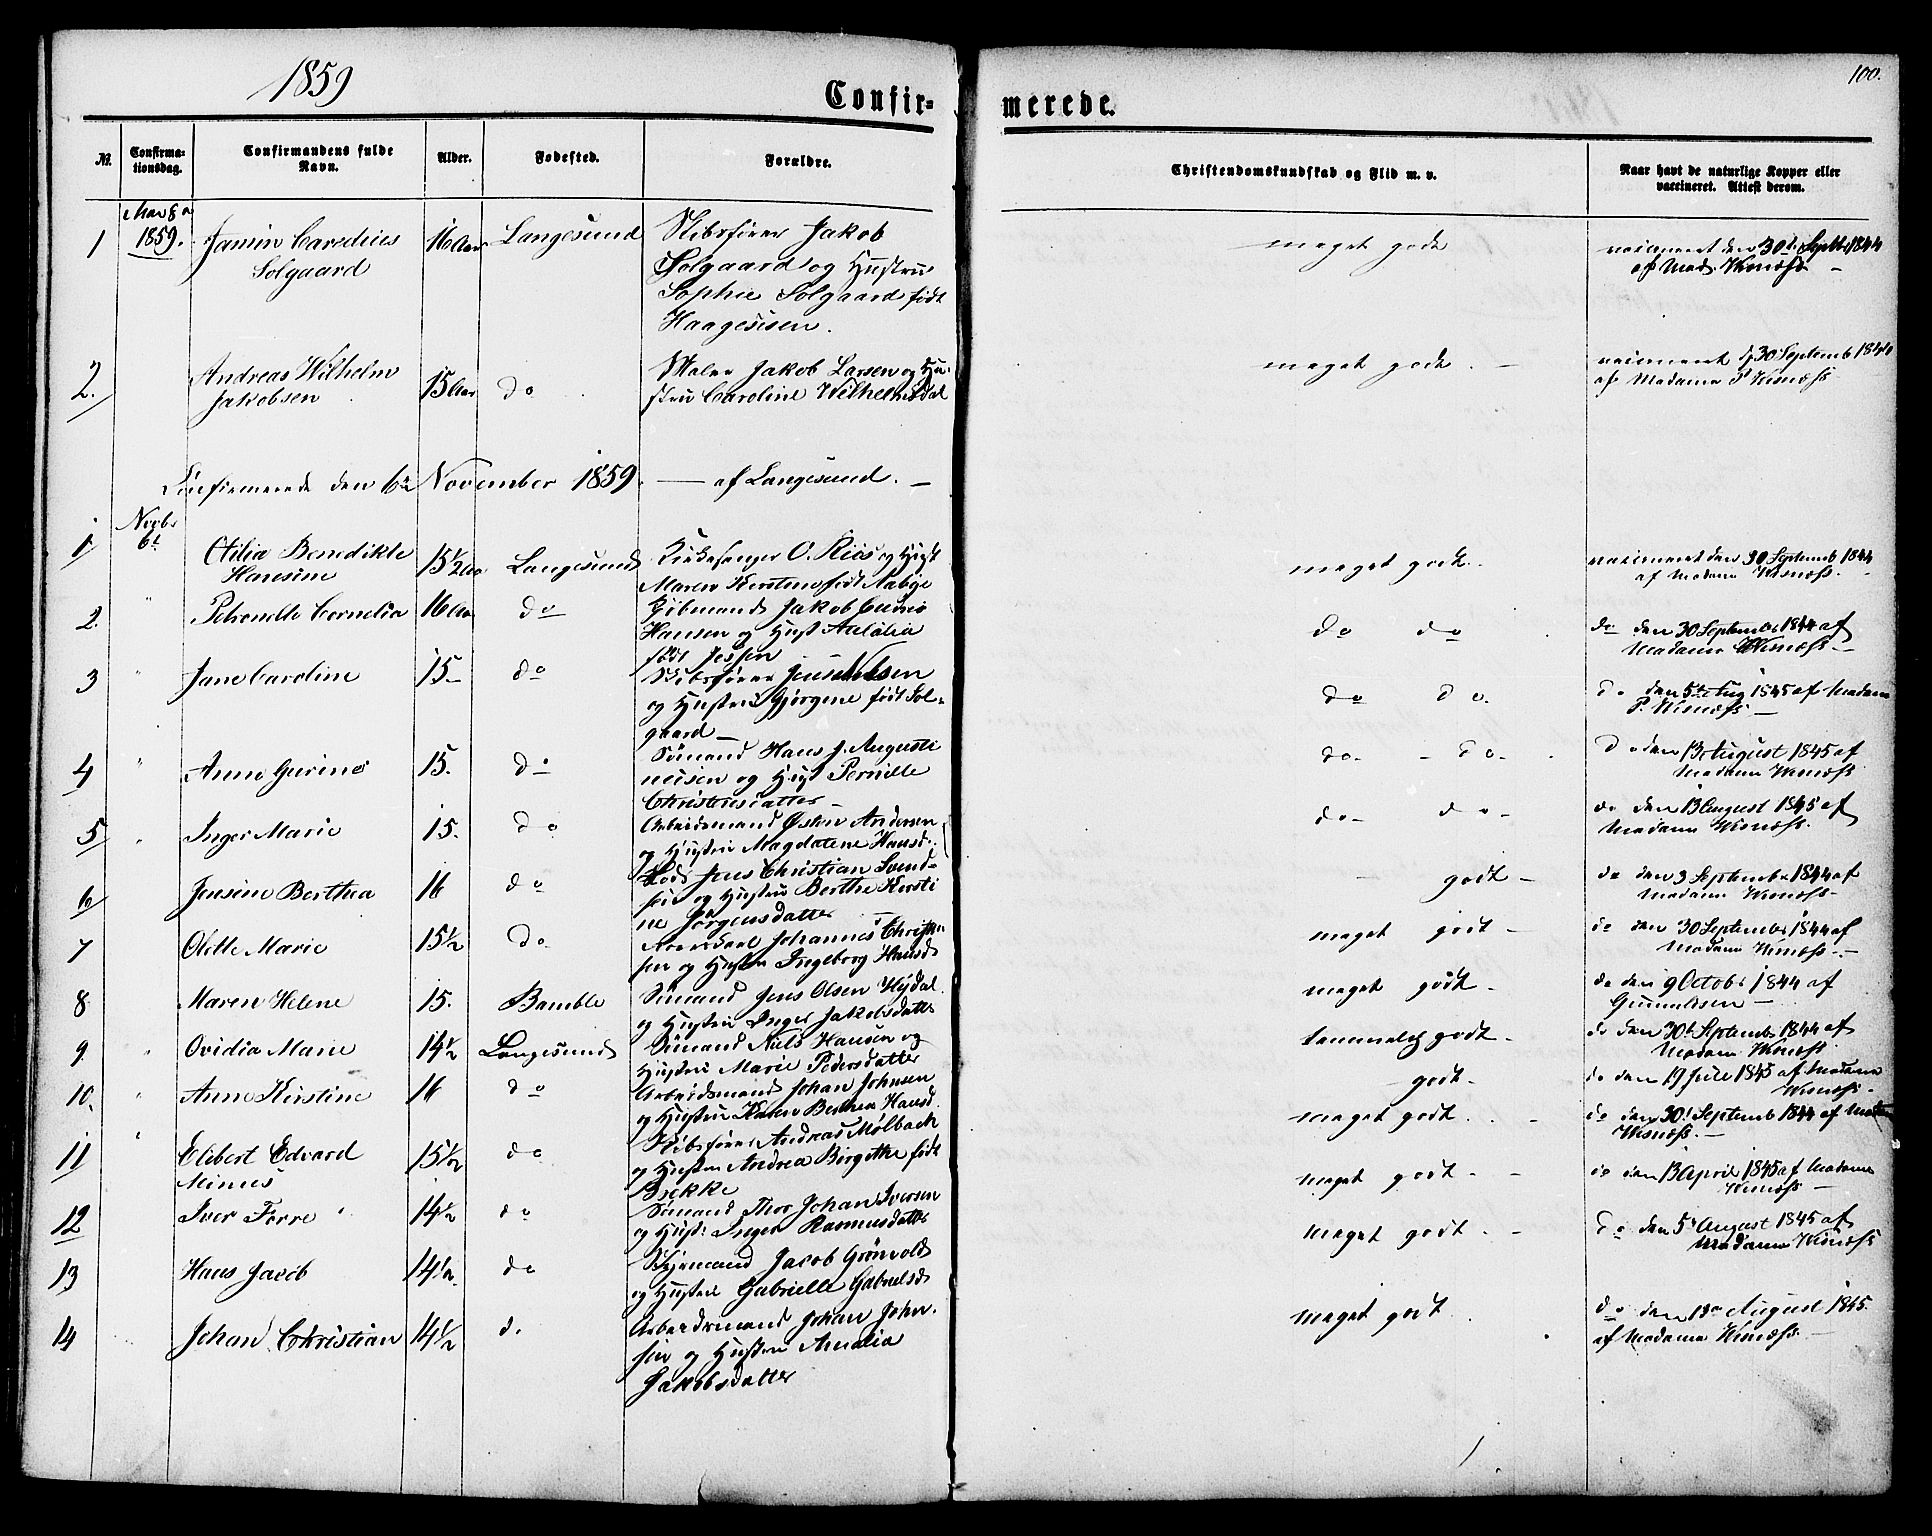 1859
Confir-
merede.
100.
№
Confirma-
tionsdag.
Confirmandens fulde
Navn.
Alder.
Fødested.
Forældre.
Christendomskundskab og Flid m. v.
Naar havt de naturlige Kopper eller
vaccineret. Attest derom.
1 1859. Jamin Solgaard
16 Aar Langesund
Skibsfører Jakob
Solgaard og Hustru
Sophie Solgaard født
meget godt
vaccineret den 30te Septbr 1844
af Mad. Wisnæss
2. Andreas Wilhelm
Jakobsen
15 Aar do
Jakob Larsen og Hu-
stru Caroline Wilhelmsdal
meget godt. -
vaccineret d 30 Septemb 1844
af Madame P Wisnæss
Confirmerede den 6te November 1859. — af Langesund. -
1 Novbr
6t
Otilia Benedikte
Hansine
15 1/2 Aar Langesund
Kirkesanger O. Riis og Hust
Maren Kirstine født Aabye
meget godt.
vaccineret den 30 Septemb 1844
af Madame Wisnæss.
2. " Petronelle Cornelia 16 Aar do
Kjøbmand Jakob
Hansen og Hust Amalia
født Jessen
do do
do den 30 Septembr 1844 af
Madame Wisnæss. -
3 " Jane Caroline 15 - do
Skibsfører Jens Nilsen
og Hustru Gjørgine født Sol-
gaard -
do do.
do den 5te Aug 1845 af Madame
P. Wisnæss -
4 " Anne Gurine 15. do
Sømand Hans J. Augusti
nussen og Hust Pernille
Christensdatter -
do - do -
do den 13 August 1845 af
Madame Wisnæss
5 " Inger Marie 15. do
Arbeidsmand Østen Andersen
og Hustru Magdalene Hansd.
do - do -
do den 13 August 1845 af
Madame Wisnæss.
6 Jensine Berthea 16 do
Lods Jens Christian Svend-
sen og Hustru Berthe Kirsti
ne Jørgensdatter -
- godt -
do den 3 Septembr 1844 af
Madame Wisnæss -
7 Olette Marie 15 1/2 do
Johannes Christen
sen og Hustru Ingeborg Hansd
meget godt -
do den 30 Septembr 1844 af
Madame Wisnæss. -
8 Maren Helene 15. Bamble
Sømand Jens Olsen Hydal
og Hustru Inger Jakobsdatter
meget godt -
do den 9 Octobr 1844 af
9. " Ovidia Marie 14 1/2 Langesund
Sømand Niels Hansen og
Hustru Marie Pedersdatter
temmelig godt -
do den 30t Septembr 1844 af
Madame Wisnæss
10. " Anne Kirstine 16 do
Arbeidsmand Johan Johnsen
og Hustru Karen Berthea Hansd.
- godt -
do den 19 Juli 1845 af Madame
Wisnæss. -
11 " Elebert Edvard
Minus
15 1/2 do
Skibsfører Andreas Molback
og Hustru Andrea Birgitte født
Brekke
meget godt. - -
do den 30t Septemb 1844 af Madame
Wisnæss. -
12 Iver Ferre " 14 1/2 do
Sømand Thor Johan Iversen
og Hust: Inger Rasmusdatter
meget godt - -
do den 13 April 1845 af Madame
Wisnæss -
13 Hans Jacob 14 1/2. do
Styrmand Jacob Grønvold
og Hustru Gabrielle Gabrielsd
meget godt - -
do den 5t August 1845 af
Madame Wisnæss
14 Johan Christian 14 1/2 do
Arbeidsmand Johan John-
sen og Hustru Amalia
Jakobsdatter
meget godt.
do den 13de August 1845.
af Madame Wisnæss. -